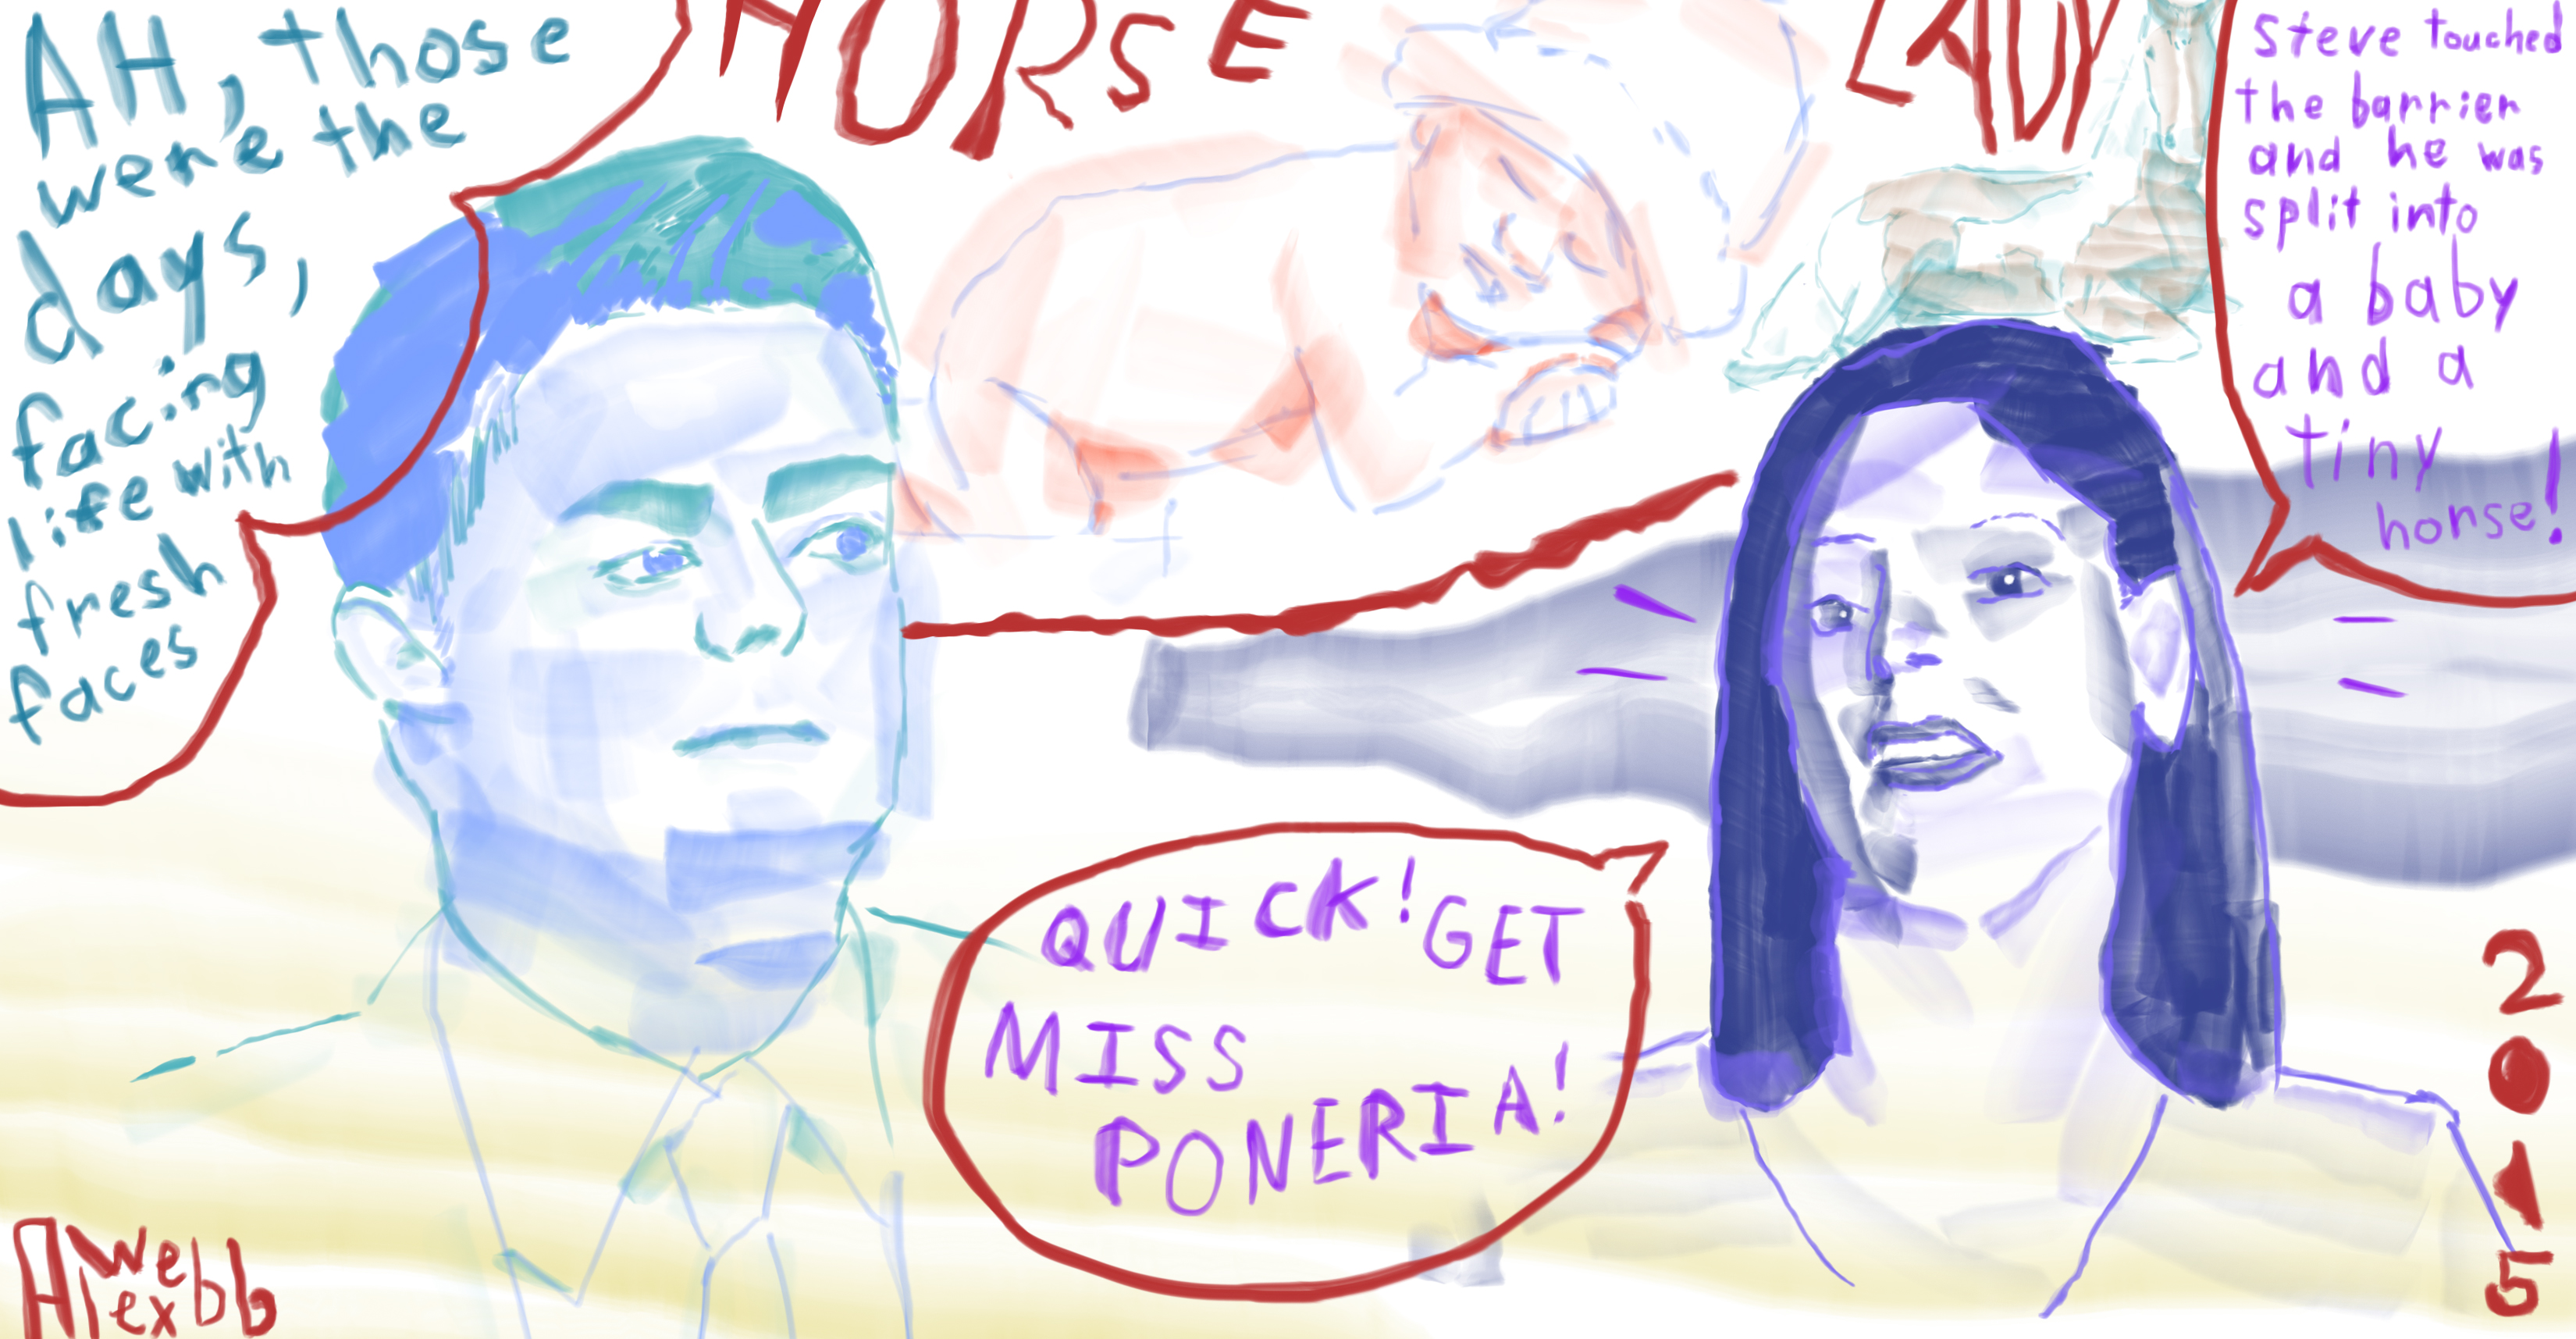 HORSE LADY
AH, those
were the
days,
facing
life with
fresh
faces
steve touched
the barrier
and he was
split into
a baby
and a
tiny
horse!
QUICK! GET
MISS
PONERIA!
2015
Alex
Webb